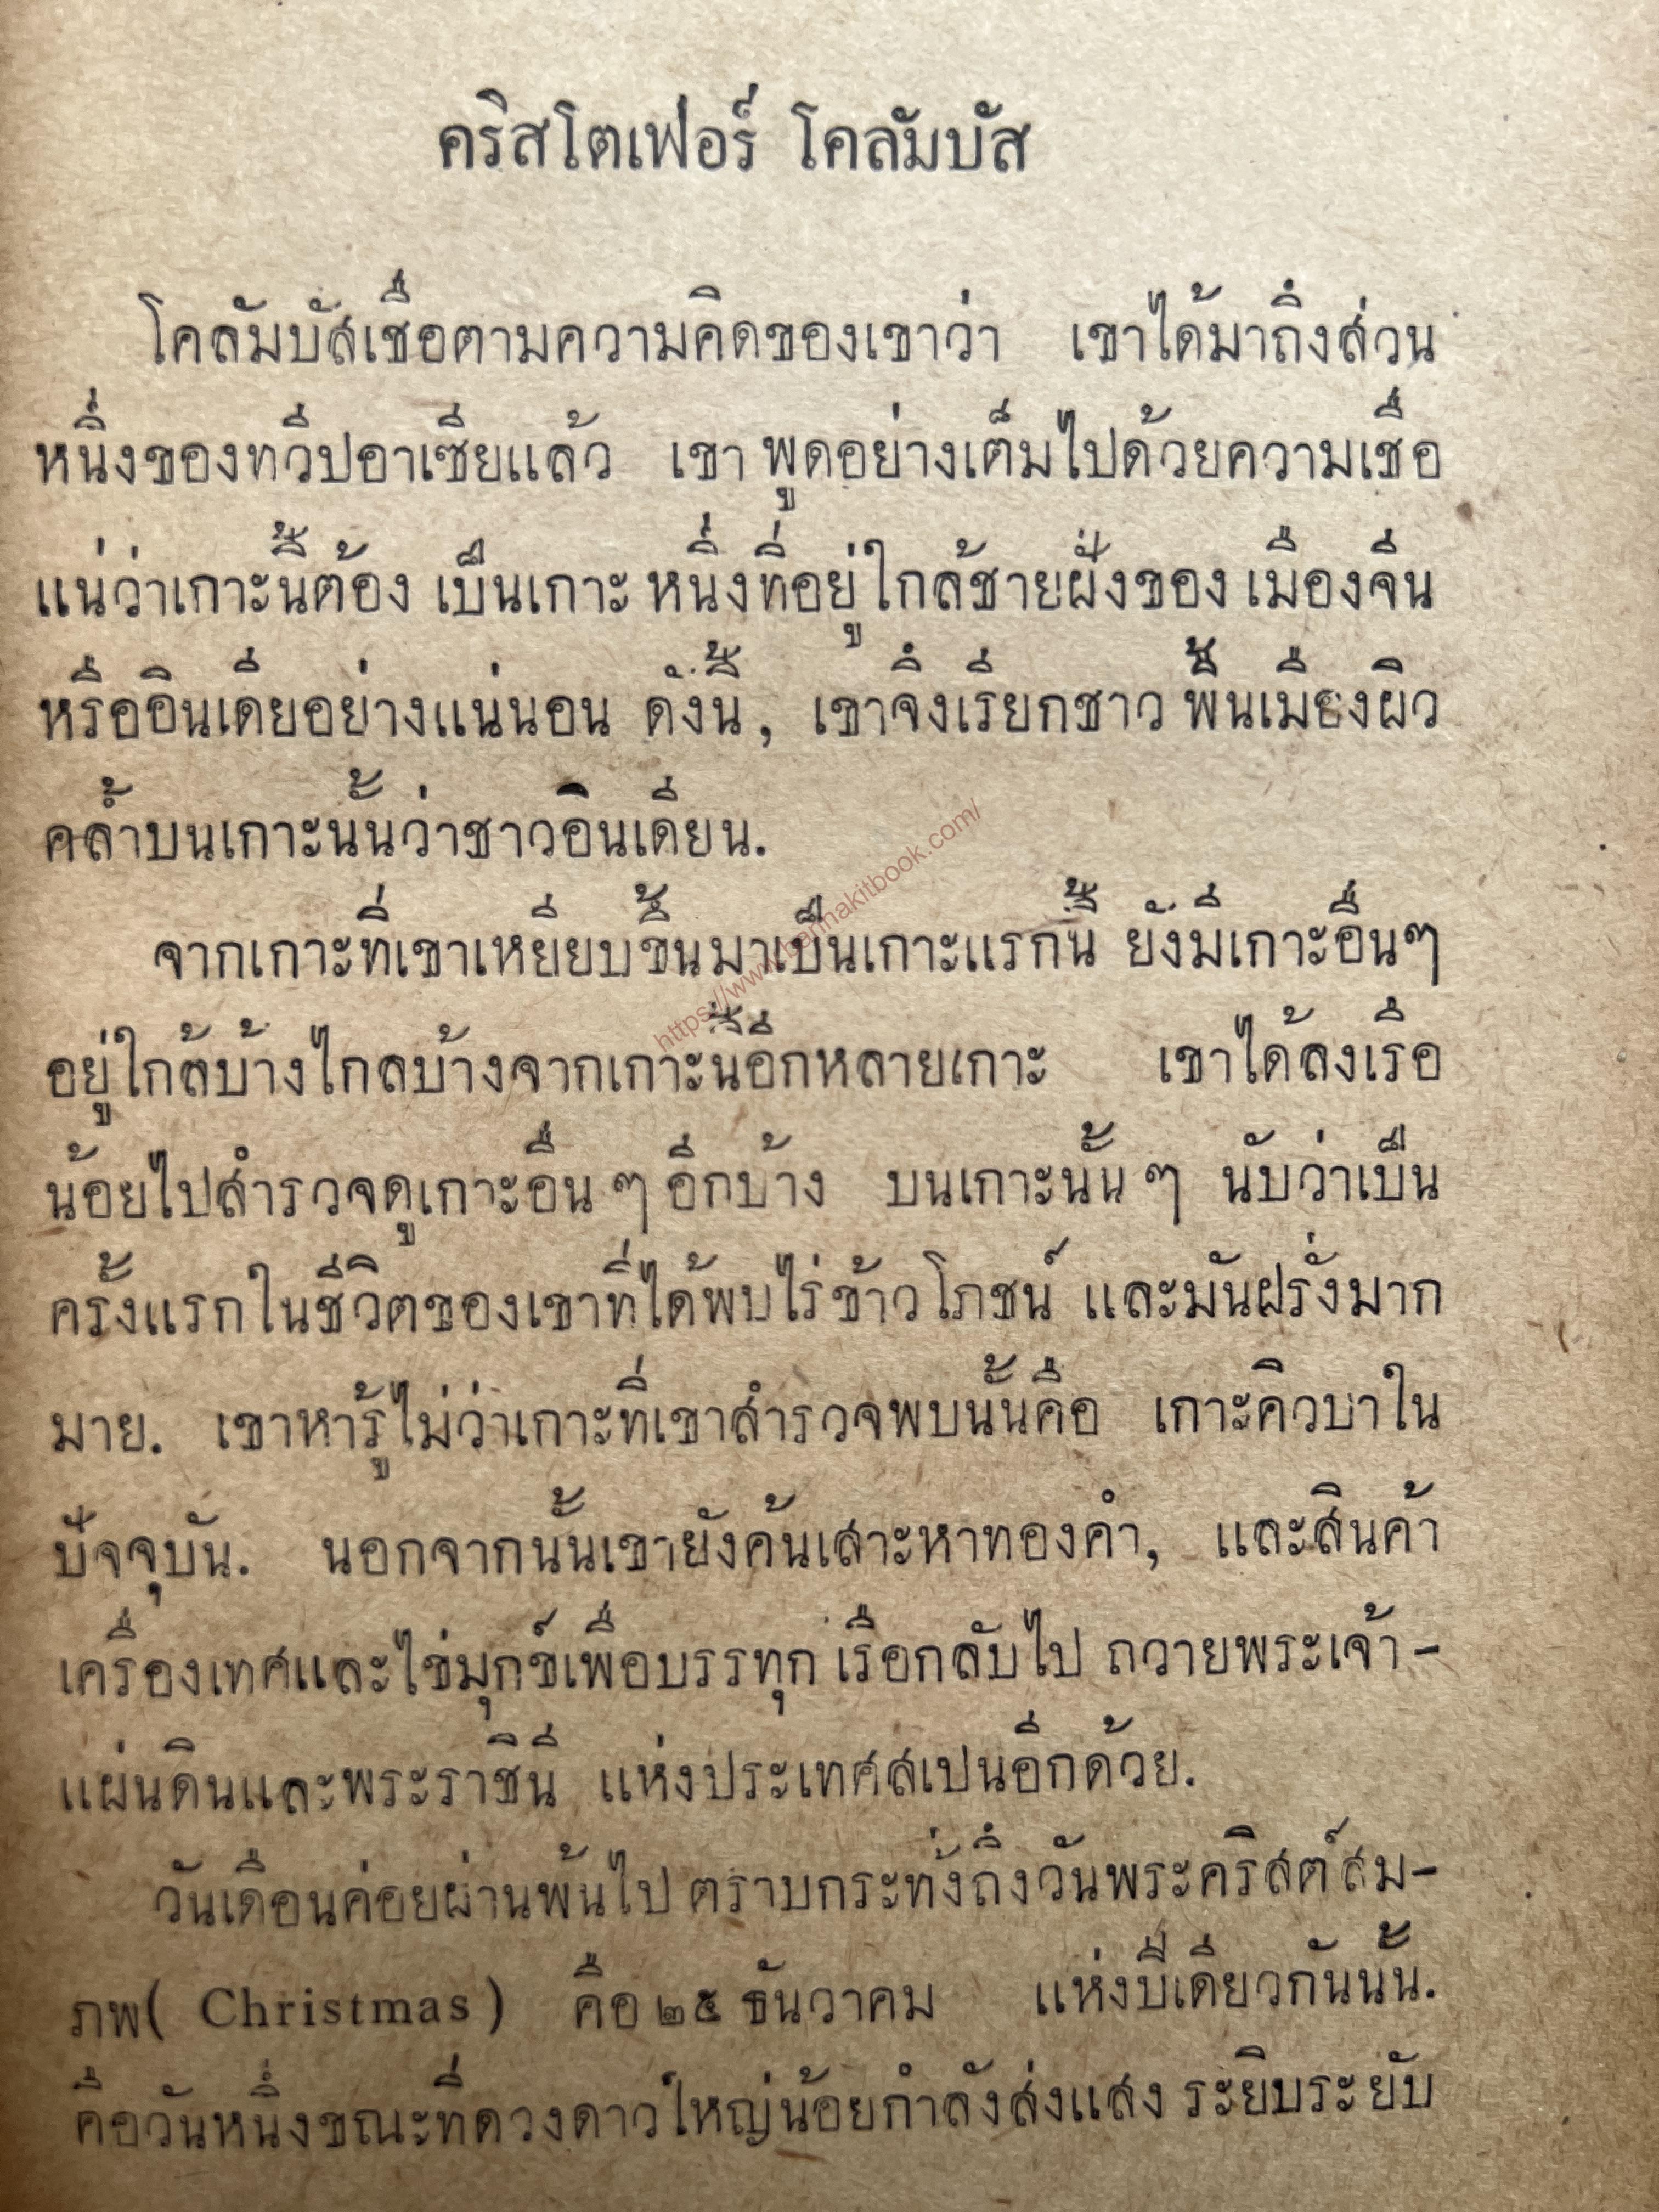 คริสโตเฟอร์ โคลัมบัส
โคลัมบัสเชื่อตามความคิดของเขาว่า เขาได้มาถึงส่วน
หนึ่งของทวีปอาเซียแล้ว เขา พูดอย่างเต็มไปด้วยความเชื่อ
แน่ว่าเกาะนี้ต้อง เป็นเกาะ หนึ่งที่อยู่ ใกล้ชายฝั่งของ เมืองจีน
หรืออินเดียอย่างแน่นอน ดังนี้, เขาจึงเรียกชาว พื้นเมืองผิว
คล้ำบนเกาะนั้นว่าชาวอินเดียน.
จากเกาะที่เขาเหยียบขึ้นมาเป็นเกาะแรกนี้ ยังมีเกาะอื่นๆ
https://www.bannakitbook.com/
อยู่ใกล้บ้างไกลบ้างจากเกาะนี้อีกหลายเกาะ เขาได้ลงเรือ
น้อยไปสำรวจดูเกาะอื่น ๆ อีกบ้าง บนเกาะนั้น ๆ นับว่าเป็น
ครั้งแรกในชีวิตของเขาที่ได้พบไร่ข้าวโภชน์ และมันฝรั่งมาก
มาย. เขาหารู้ไม่ว่าเกาะที่เขาสำรวจพบนั้นคือ เกาะคิวบาใน
ปัจจุบัน. นอกจากนั้นเขายังค้นเสาะหาทองคำ, และสินค้า
เครื่องเทศและไข่มุกข์เพื่อบรรทุก เรือกลับไป ถวายพระเจ้า-
แผ่นดินและพระราชินี แห่งประเทศสเปนอีกด้วย.
วันเดือนค่อยผ่านพ้นไป ตราบกระทั่งถึงวันพระคริสต์สม-
ภพ( Christmas ) คือ ๒๕ ธันวาคม แห่งปีเดียวกันนั้น.
คือวันหนึ่งขณะที่ดวงดาวใหญ่น้อยกำลังส่งแสง ระยิบระยับ